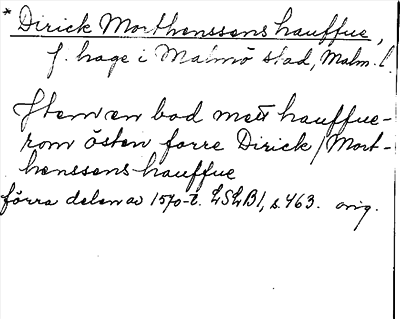 * Dirick Morthenssens hauffue,
f. hage i Malmö stad, Malm. l.
Item en bod mett hauffue-
rom östen forre Dirick / Mort-
henssens hauffue
förra delen av 1570-t. LSLB1, s. 463. orig.